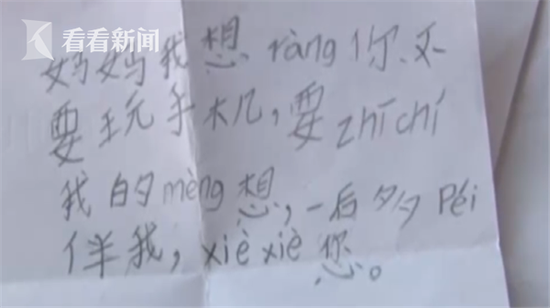 看看新闻
妈妈我想ràng你不
要玩手机,要zhīchí
我的mèng想,一后多péi
伴我,xièxiè您。